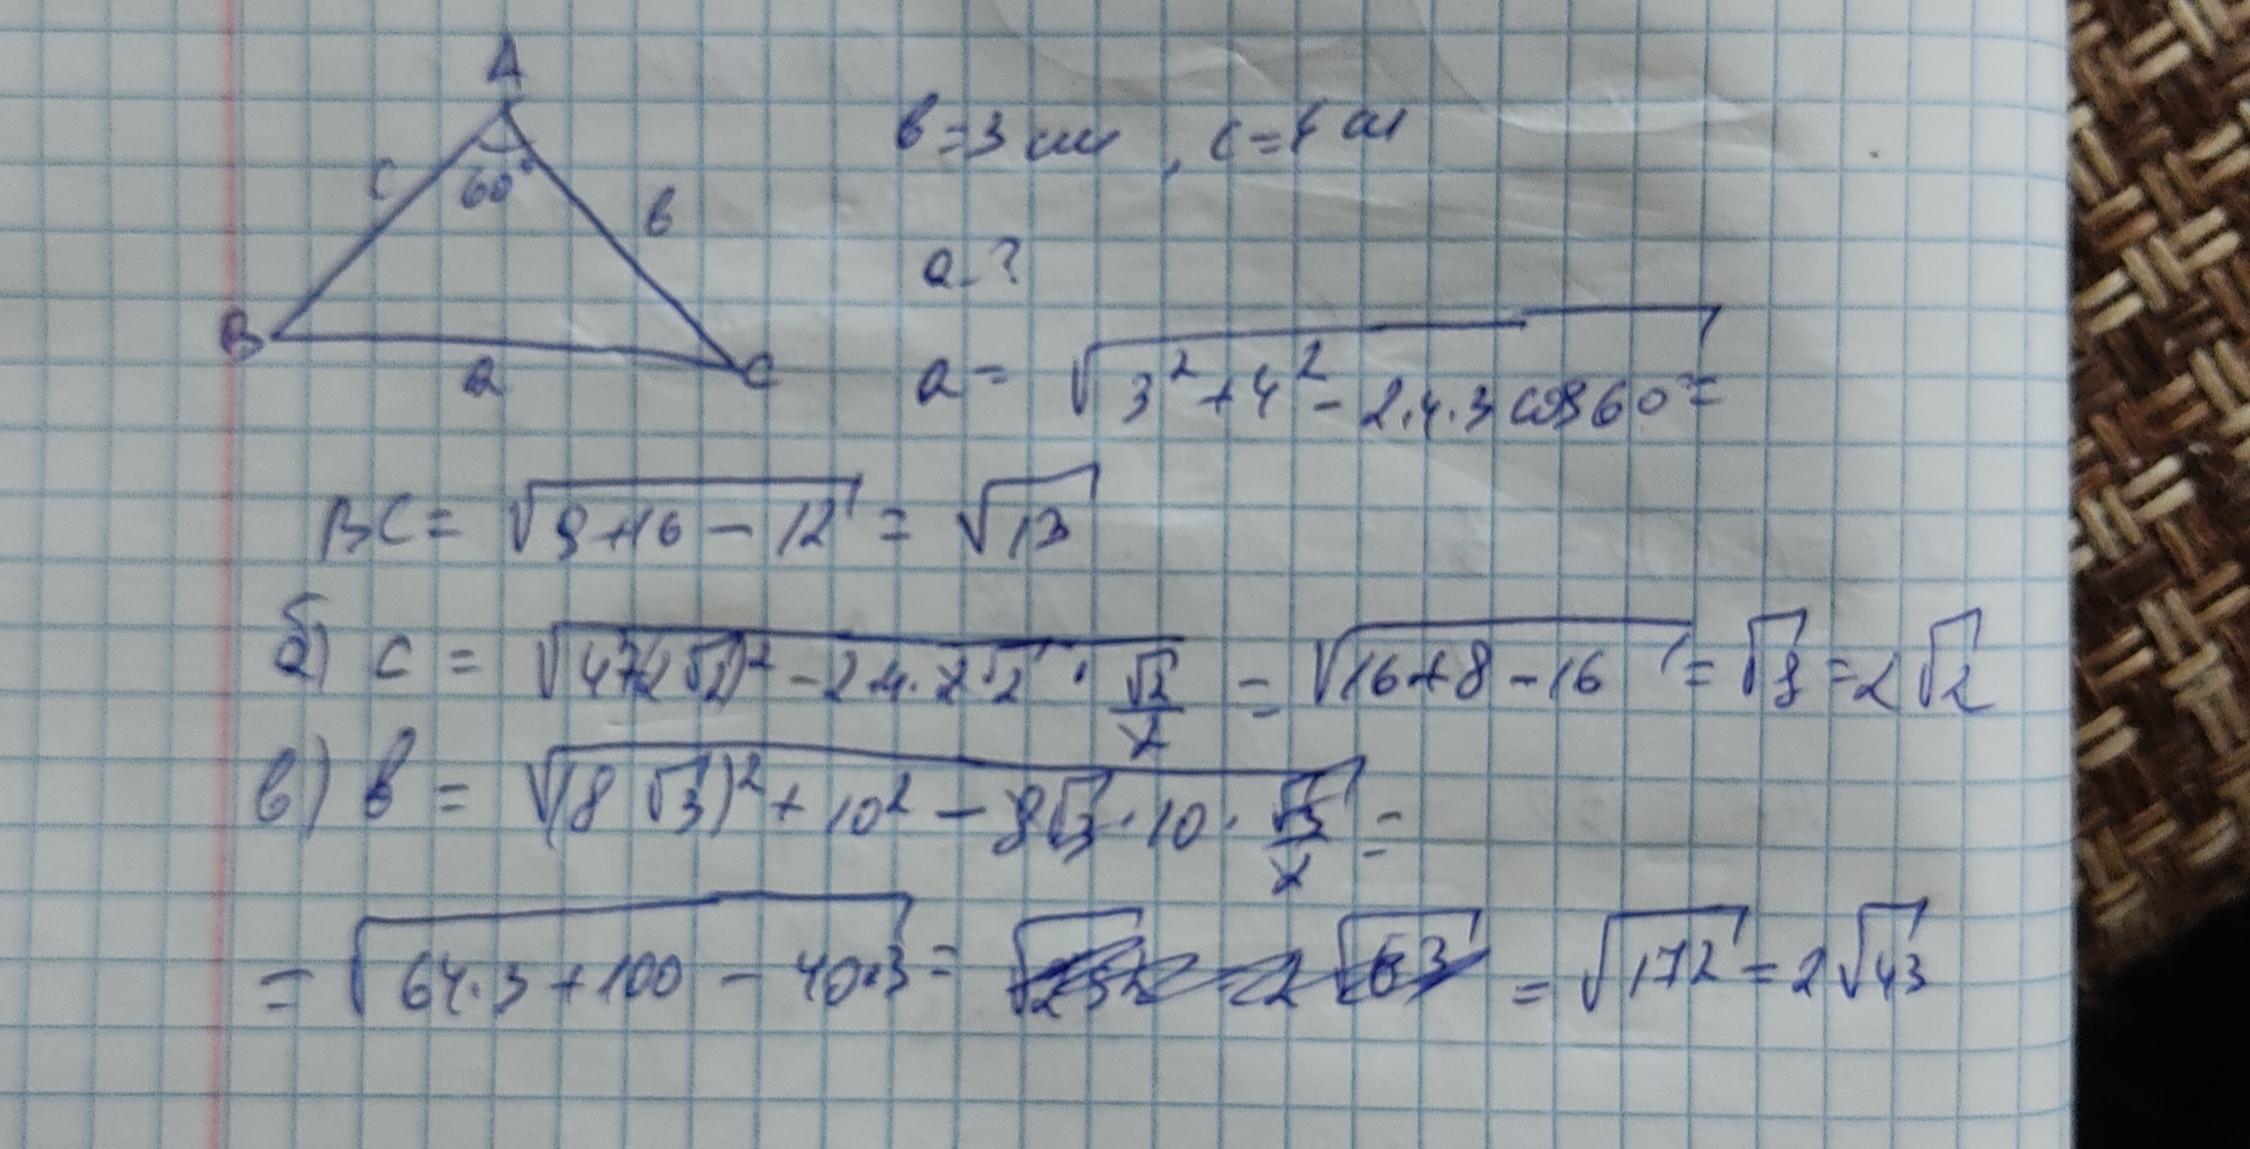 A
c 60° в
B a C
в=3 см, c=4 см
a-?
a = √(3² + 4² - 2·4·3 cos60° =
BC = √(9+16-12) = √13
б) c = √(4²+(2√2)² - 2·4·2√2 · √2/2) = √(16+8-16) = √8 = 2√2
в) в = √((8√3)² + 10² - 8√3·10·√3/2) =
= √(64·3+100-40·3) = √172 = 2√43